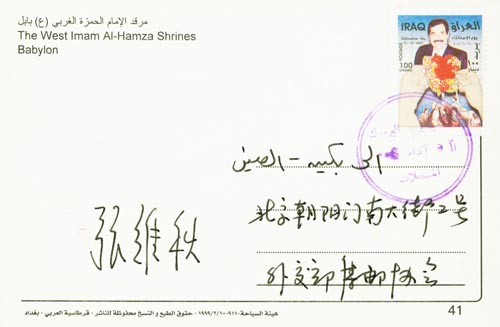 مرقد الإمام الحمزة الغربي (ع) بابل
The West Imam Al-Hamza Shrines
Babylon
العراق
IRAQ
POSTAGE
100
DINARS
١٠٠
دينار
الى بكين - الصين
北京朝阳门南大街2号
外交部集邮协会
张维秋
هيئة السياحة - ٩١١ - ١٩٩٩/٢/١٠ - حقوق الطبع و النسخ محفوظة للناشر - قرطاسية العربي - بغداد
41